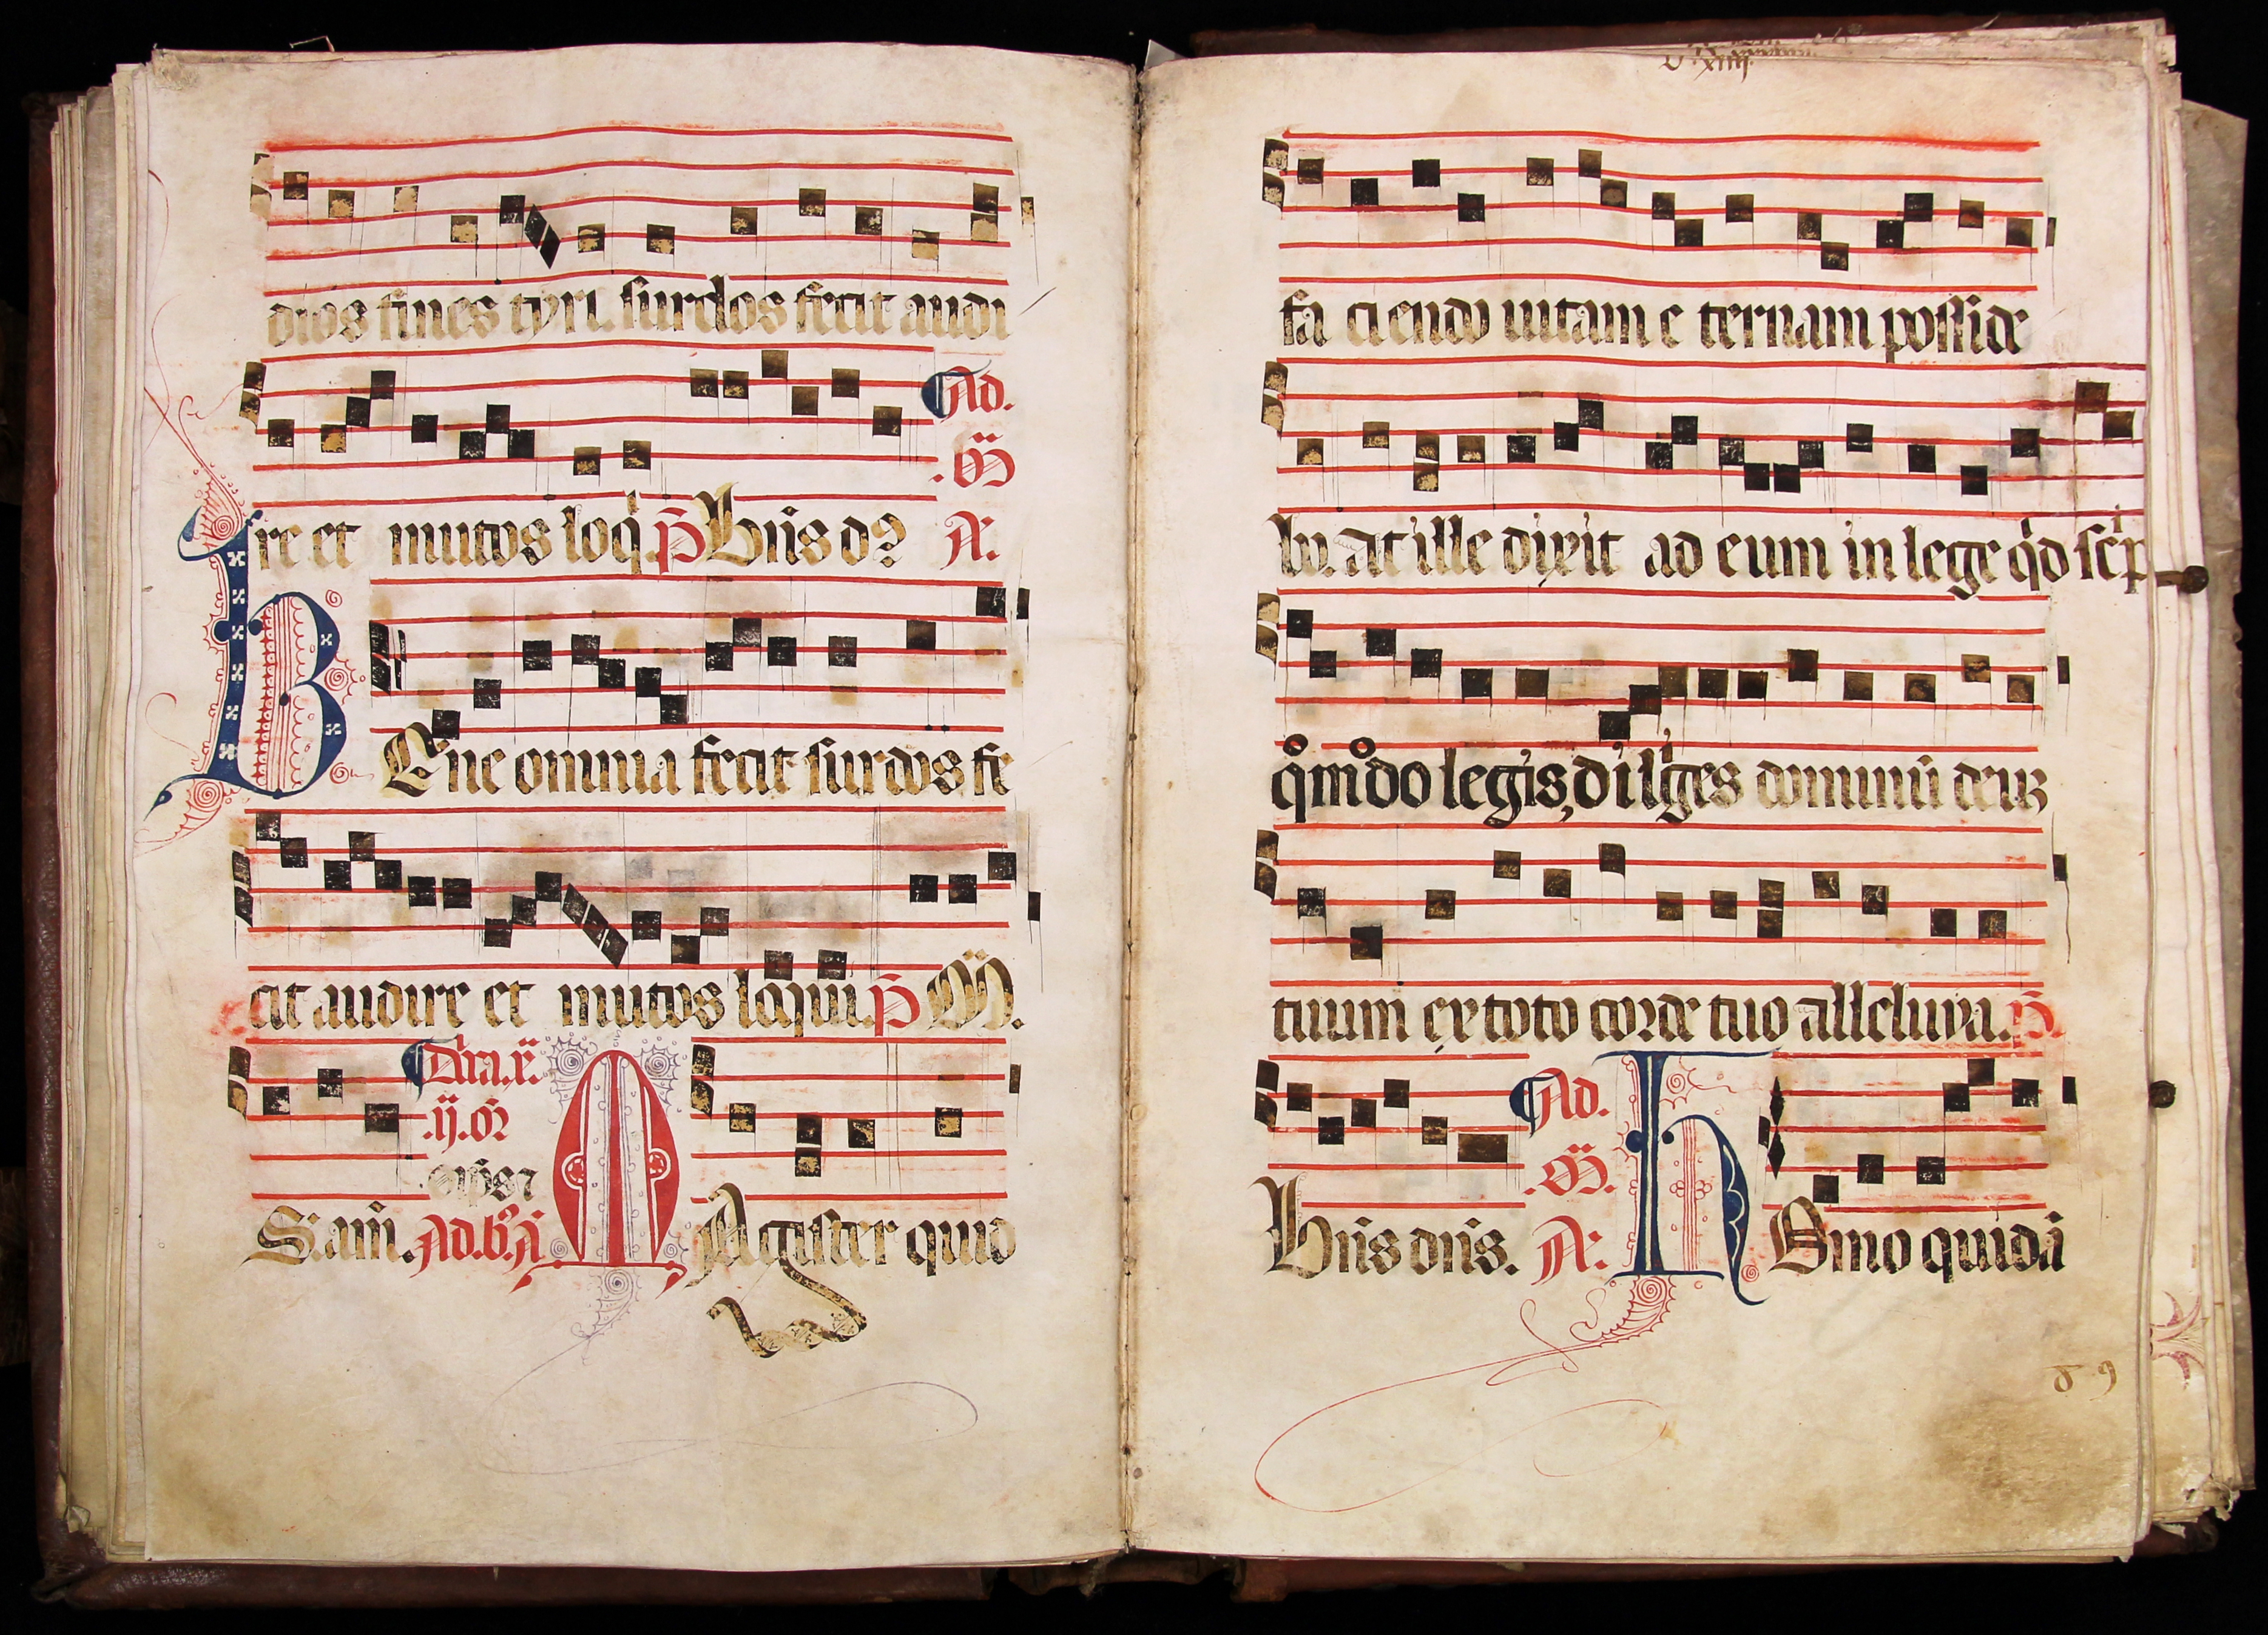 dios fines tyri. surdos fecit audi
Ad.
.M̄
re et mutos loq̇. P̄ Bn̄s d? A.
BEne omnia fecit surdos fe
cit audire et mutos loqui. P̄ M̄.
Dn̄ica.x̄.
.ij.
S. am̄. Ad.b. A MAgister quid
faciendo uitam eternam posside
bo. At ille dixit ad eum in lege qd sc̄p
qm̊do legis, diliges dominū deuȝ
tuum ex toto corde tuo alleluya. P̄.
Ad.
.M̄.
Bn̄s dn̄s. A: HOmo quidā